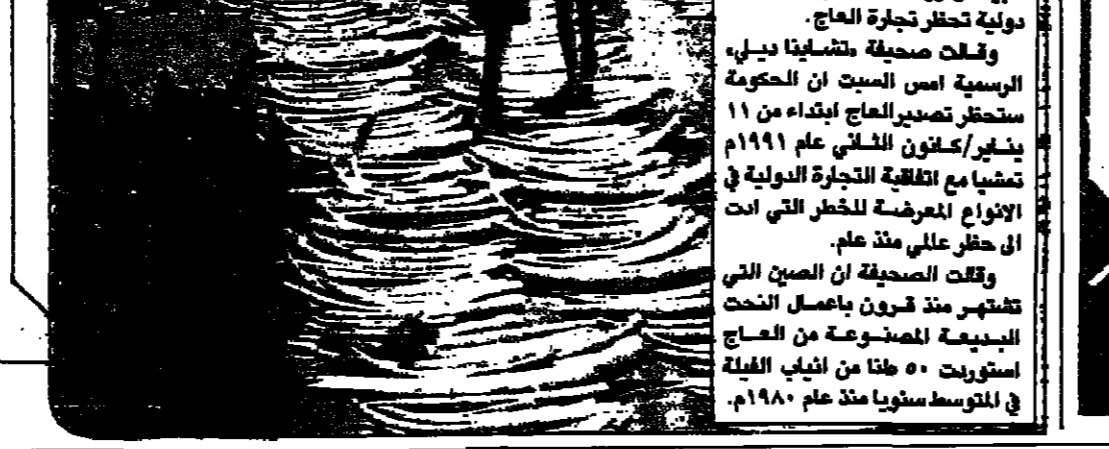 دولية تحظر تجارة العاج.
وقالت صحيفة «تشاينا ديلي»
الرسمية امس السبت ان الحكومة
ستحظر تصدير العاج ابتداء من ١١
يناير/كانون الثاني عام ١٩٩١م
تمشيا مع اتفاقية التجارة الدولية في
الانواع المعرضة للخطر التي ادت
الى حظر عالمي منذ عام.
وقالت الصحيفة ان الصين التي
تشتهر منذ قرون باعمال النحت
البديعة المصنوعة من العاج
استوردت ٥٠ طنا من انياب الفيلة
في المتوسط سنويا منذ عام ١٩٨٠م.